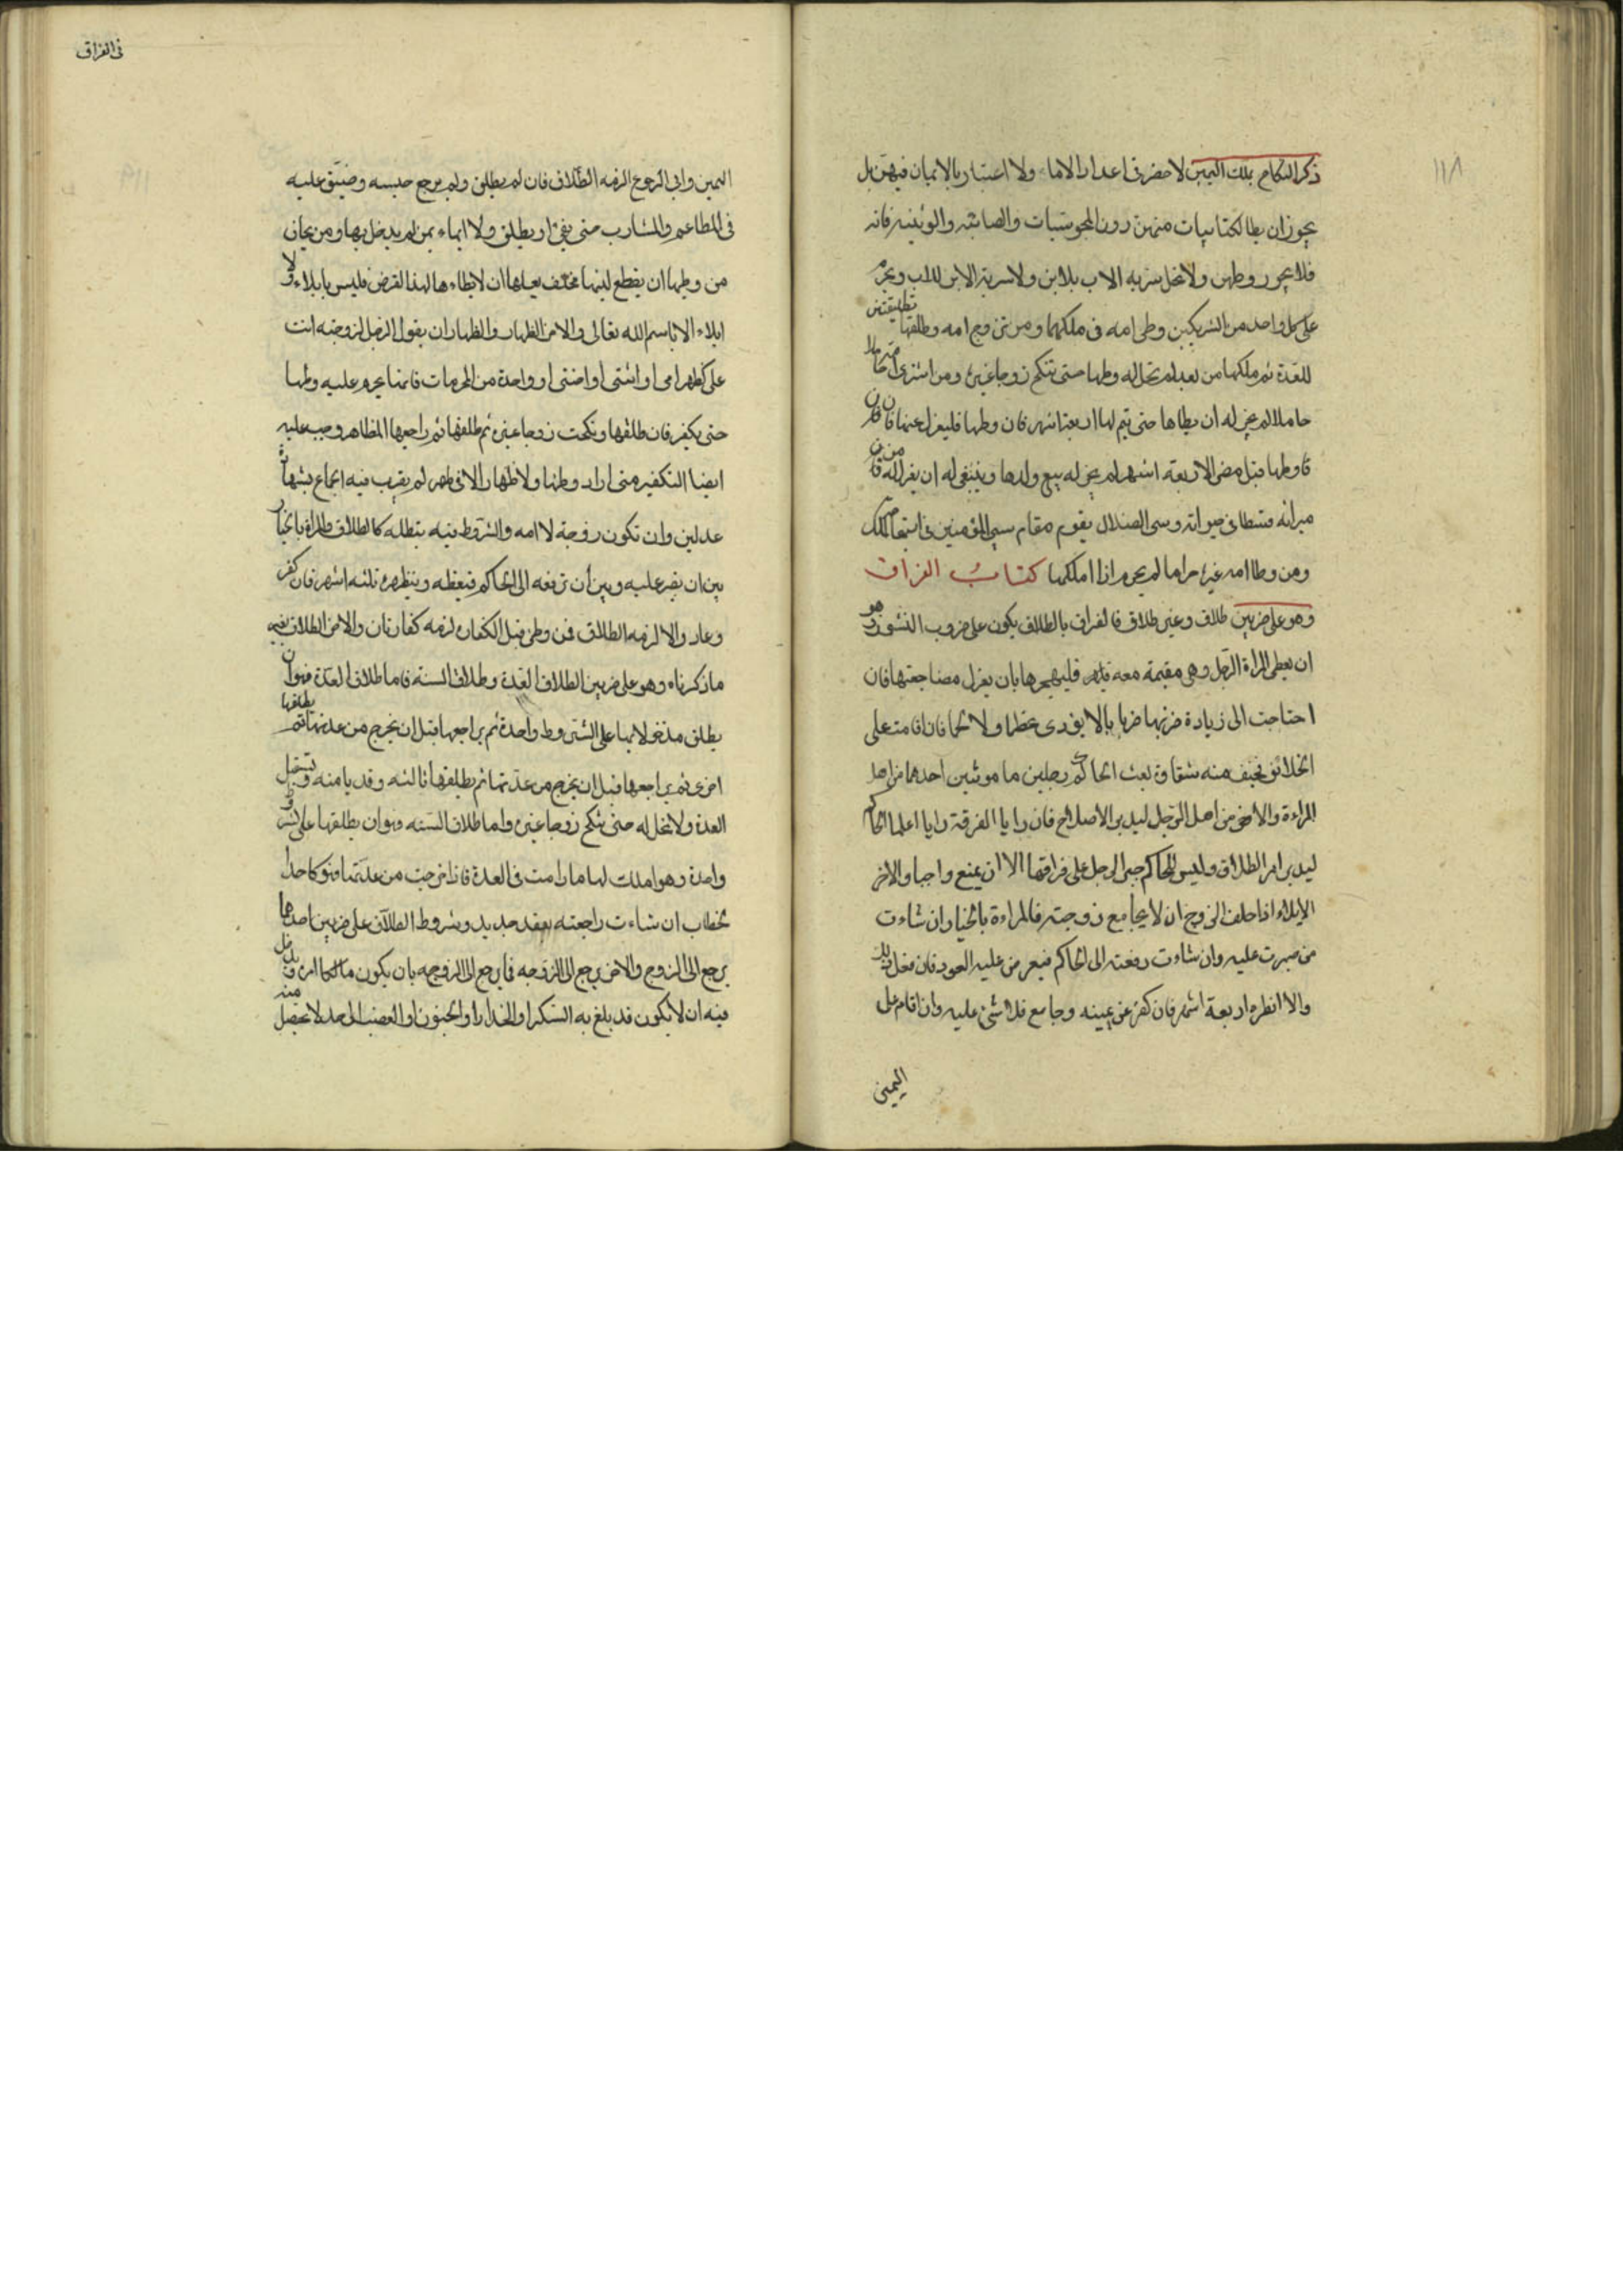 ١١٨
ذكر النكاح بملك اليمين لا حصر فى اعداد الاماء ولا اعتبار بالايمان فيهن بل
يجوز ان يطا الكتابيات منهن دون المجوسيات والصابئه والوثنيه فانه
فلا يجوز وطهن ولا تحل سريه الاب بلابن ولا سرية الابن للاب ويحرم
على كل واحد من الشريكين وطى امه فى ملكهما ومن تزوج امه وطلقها تطليقتين
للعدة ثم ملكها من بعد لم تحل له وطها حتى تنكح زوجا غيره ومن اشترى امة حاملا
حاملا لم يجز له ان يطاها حتى يتم لها اربعة اشهر فان وطها فليعزل عنها فان
فاوطها قبل مضى الاربعة اشهر لم يجز له بيع ولدها وينبغى له ان يعزل له من
ميراثه قسطا فى حيواته وسبى الضلال يقوم مقام سبى المؤمنين فى استباحة الملك
ومن وطا امه غيره حراما لم يحرم اذا املكها كتابُ الفراق
وهو على ضربين طلاق وغير طلاق فالفراق بالطلاق يكون على ضروب النشوز وهو
ان يعطى المراة الرجل وهى مقيمة معه فليهجرها بان يعزل مضاجعتها فان
احتاجت الى زيادة ضربها ضربا بالا يؤدى عظما ولا لحما فان اقامت على
الخلائق فخيف منه شقاق بعث الحاكم رجلين مامونين احدهما من اهل
المراءة والاخر من اهل الرجل ليدبر الاصلاح فان رايا الفرقة رايا اعلما الحاكم
ليدبر امر الطلاق وليس للحاكم جبر الرجل على فراقها الا ان يمنع واجبا والاخر
الايلاء اذا حلف الزوج ان لا يجامع زوجته فالمراءة بالخيار ان شاءت
من صبرت عليه وان شاءت رفعته الى الحاكم فيعرض عليه العود فان فعل ذلك
والا انظره اربعة اشهر فان كفر عن يمينه وجامع فلا شئ عليه وان اقام على
اليمين
فى الفراق
اليمين وابى الرجوع الزمه الطلاق فان لم يطلق ولم يرجع حبسه وضيق عليه
فى المطاعم والمشارب حتى يفئ او يطلق ولا ايلاء بمن لم يدخل بها ومن يخاف
من وطها ان يقطع لبنها فحلف بعلها ان لا يطاءها لهذا الغرض فليس بايلاء ولا
ايلاء الا باسم الله تعالى والاخر الظهار والظهار ان يقول الرجل لزوجته انت
على كظهر امى او ابنتى او اختى او واحدة من المحرمات فانما يحرم عليه وطها
حتى يكفر فان طلقها ونكحت زوجا غيره ثم طلقها ثم راجعها المظاهر وجب عليه
ايضا التكفير متى اراد وطها ولا ظهار الا فى طهر لم يقرب فيه بجماع بشهادة
عدلين وان تكون زوجة لا امه والشروط فيه يبطله كالطلاق والمراة بالخيار
بين ان يصبر عليه وبين ان ترفعه الى الحاكم فيعظه وينظره ثلثه اشهر فان كفر
وعاد والا لزمه الطلاق فمن وطى قبل الكفاره لزمه كفارتان والاخر الطلاق بغير
ما ذكرناه وهو على ضربين الطلاق العدة وطلاق السنه فاما طلاق العدة فهو ان
يطلق مدخولا بها على الشروط واحدة ثم يراجعها قبل ان يخرج من عدتها ثم يطلقها
اخرى ثم يراجعها قبل ان يخرج من عدتها ثم يطلقها ثالثه وقد بانت منه وتستقبل
العدة ولا تحل له حتى تنكح زوجا غيره واما طلاق السنه فهو ان يطلقها على الشروط
واحدة وهو املك لها ما دامت فى العدة فاذا خرجت من عدتها فهو كاحد
الخطاب ان شاءت راجعته بعقد جديد وشروط الطلاق على ضربين احدهما
يرجع الى الزوج والاخر يرجع الى الزوجه فايرجع الى الزوجه بان يكون مالكا امره ويدخل
فيه ان لا يكون قد بلغ به السكر او الخدار او الجنون او الغضب الى حد لا يحصل منه